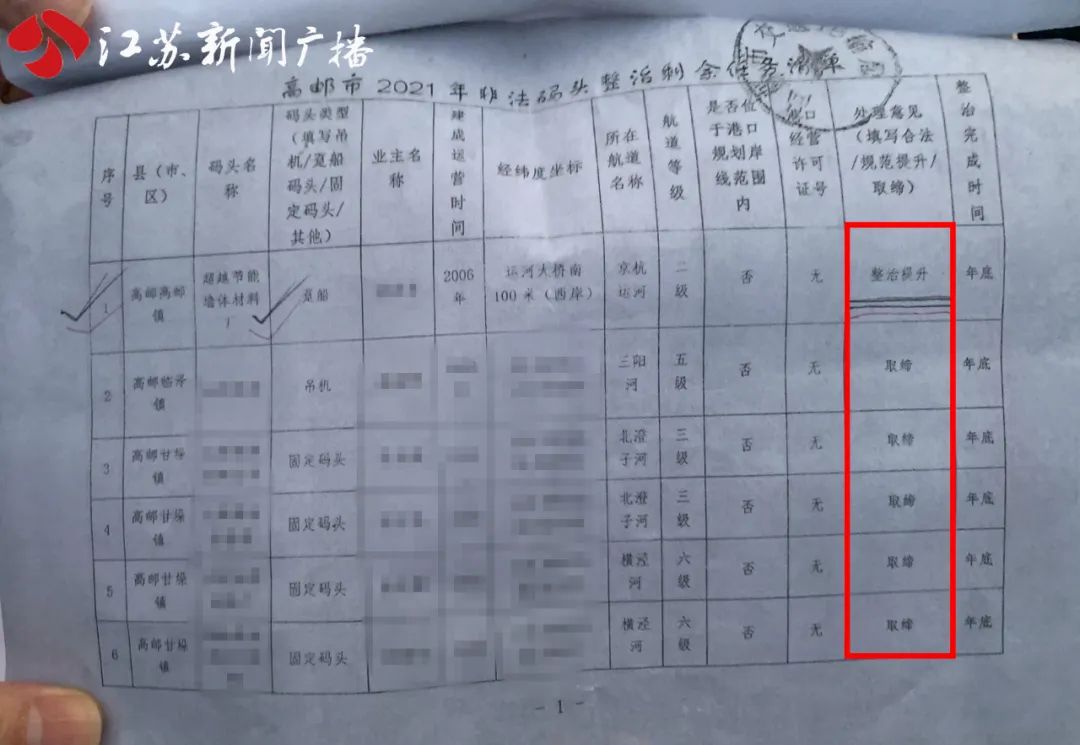 江苏新闻广播
高邮市2021年非法码头整治剩余任务清单
序号
县(市、区)
码头名称
码头类型(填写吊机/趸船码头/固定码头/其他)
业主名称
建成运营时间
经纬度坐标
所在航道名称
航道等级
是否位于港口规划岸线范围内
港口经营许可证号
处理意见(填写合法/规范提升/取缔)
整治完成时间
1 高邮高邮镇 超越节能墙体材料厂 趸船 2006年 运河大桥南100米(西岸) 京杭运河 二级 否 无 整治提升 年底
2 高邮临泽镇 吊机 三阳河 五级 否 无 取缔 年底
3 高邮甘垛镇 固定码头 北澄子河 三级 否 无 取缔 年底
4 高邮甘垛镇 固定码头 北澄子河 三级 否 无 取缔 年底
5 高邮甘垛镇 固定码头 横泾河 六级 否 无 取缔 年底
6 高邮甘垛镇 固定码头 横泾河 六级 否 无 取缔 年底
- 1 -